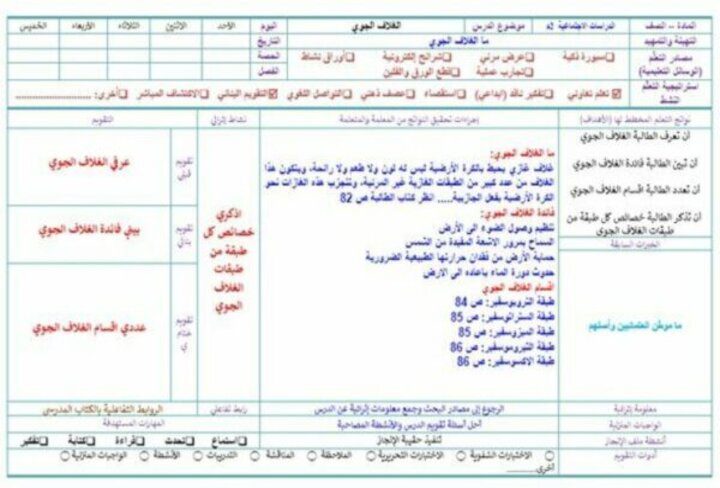 المادة – الصف	الدراسات الاجتماعية م2	موضوع الدرس	الغلاف الجوي	اليوم	الأحد	الاثنين	الثلاثاء	الأربعاء	الخميس
التهيئة والتمهيد	ما الغلاف الجوي	التاريخ
مصادر التعلم	☐سبورة ذكية	☐عرض مرئي	☐شرائح إلكترونية	☐أوراق نشاط	الحصة
(الوسائل التعليمية)	☐تجارب عملية	☐قطع الورق والفلين	الفصل
استراتيجية التعلم	☑تعلم تعاوني	☐تفكير ناقد (ابداعي)	☐استقصاء	☐عصف ذهني	☐التواصل اللغوي	☑التقويم البنائي	☐الاكتشاف المباشر	☐أخرى: ......................
النشط
نواتج التعلم المخطط لها (الأهداف)	إجراءات تحقيق النواتج من المعلمة والمتعلمة	نشاط إثرائي	التقويم
أن تعرف الطالبة الغلاف الجوي
أن تبين الطالبة فائدة الغلاف الجوي
أن تعدد الطالبة اقسام الغلاف الجوي
أن تذكر الطالبة خصائص كل طبقة من
طبقات الغلاف الجوي
الخبرات السابقة
ما موطن العثمانيين وأصلهم
ما الغلاف الجوي:
غلاف غازي يحيط بالكرة الأرضية ليس له لون ولا طعم ولا رائحة، ويتكون هذا
الغلاف من عدد كبير من الطبقات الغازية غير المرئية، وتنجذب هذه الغازات نحو
الكرة الأرضية بفعل الجاذبية..... انظر كتاب الطالبة ص 82
فائدة الغلاف الجوي:
تنظيم وصول الضوء الى الأرض
السماح بمرور الاشعة المفيدة من الشمس
حماية الأرض من فقدان حرارتها الطبيعية الضرورية
حدوث دورة الماء باعاده الى الارض
اقسام الغلاف الجوي
طبقة التروبوسفير: ص 84
طبقة الستراتوسفير: ص 85
طبقة الميزوسفير: ص 85
طبقة الثيرموسفير: ص 86
طبقة الاكسوسفير: ص 86
اذكري
خصائص كل
طبقة من
طبقات
الغلاف
الجوي
تقويم
قبلي
عرفي الغلاف الجوي
تقويم
بنائي
بيني فائدة الغلاف الجوي
تقويم
ختام
ي
عددي اقسام الغلاف الجوي
معلومة إثرائية	الرجوع إلى مصادر البحث وجمع معلومات إثرائية عن الدرس	رابط تفاعلي	الروابط التفاعلية بالكتاب المدرسي
الواجبات المنزلية	أحل أسئلة تقويم الدرس والأنشطة المصاحبة	المهارات المستهدفة
أنشطة ملف الإنجاز	تنفيذ حقيبة الإنجاز	☐استماع	☐تحدث	☐قراءة	☐كتابة	☐تفكير
أدوات التقويم	○ الاختبارات الشفوية	○ الاختبارات التحريرية	○ الملاحظة	○ المناقشة	○ التدريبات	○ الأنشطة	○ الواجبات المنزلية	○
أخرى..........